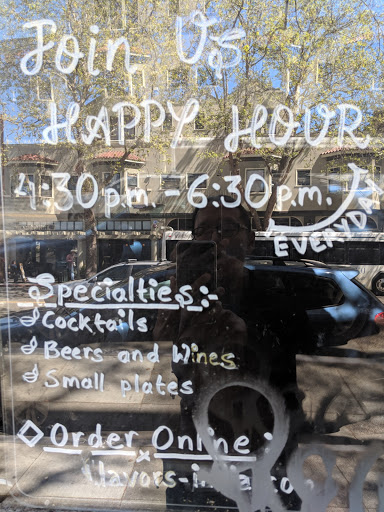 Join Us
HAPPY HOUR
4:30p.m.-6:30p.m.
EVERYDAY
Specialties:-
Cocktails
Beers and Wines
Small plates
Order Online: